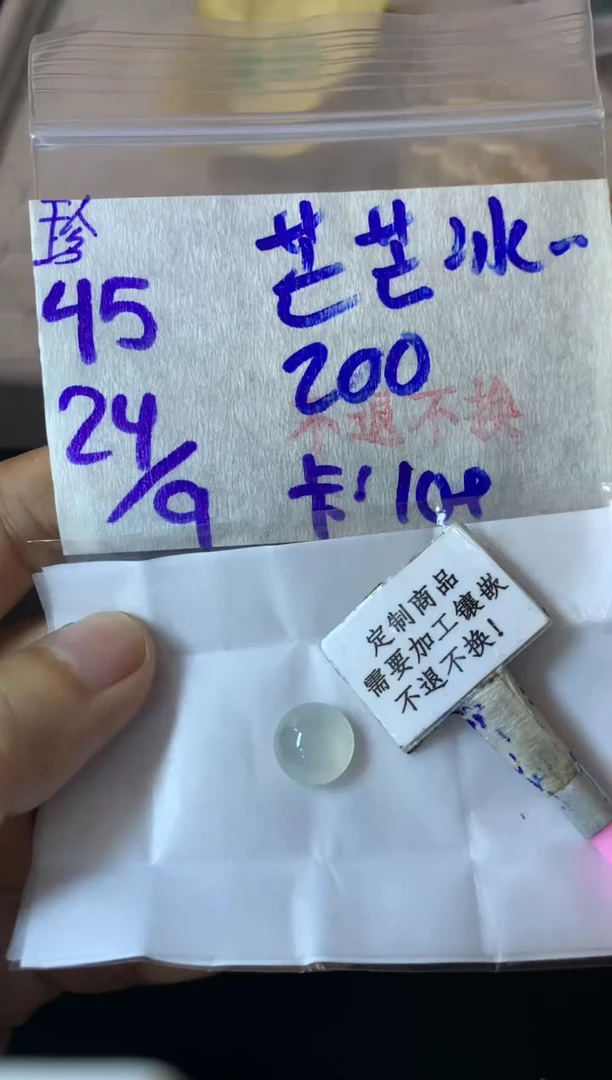 珍
45
24/9
芒芒冰..
200
不退不换
定制商品
需要加工镶嵌
不退不换!